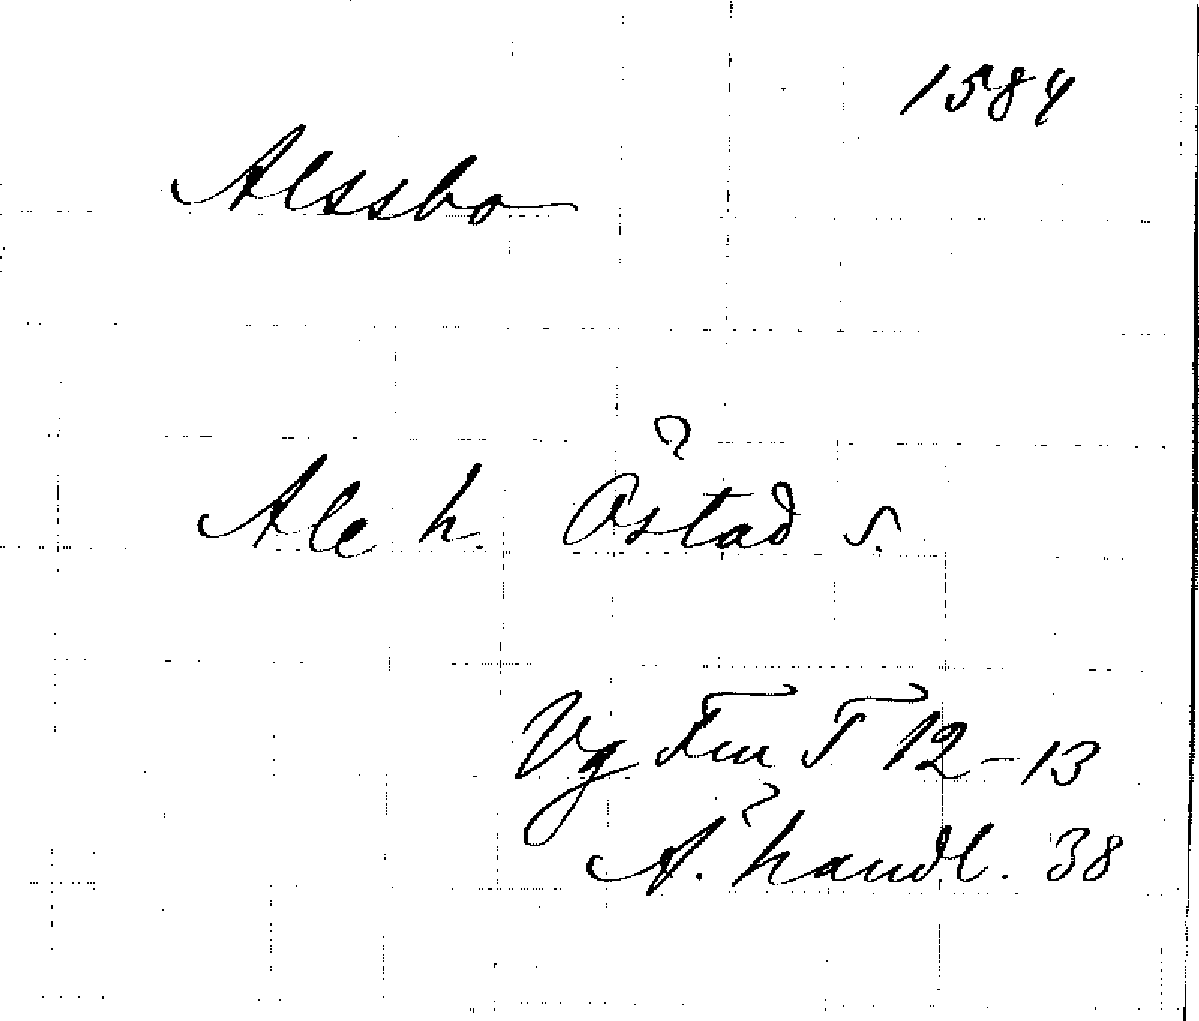 1584
Alssbo
Ale h. Östad s.
Vg Fru T 12-13
Ä. handl. 38